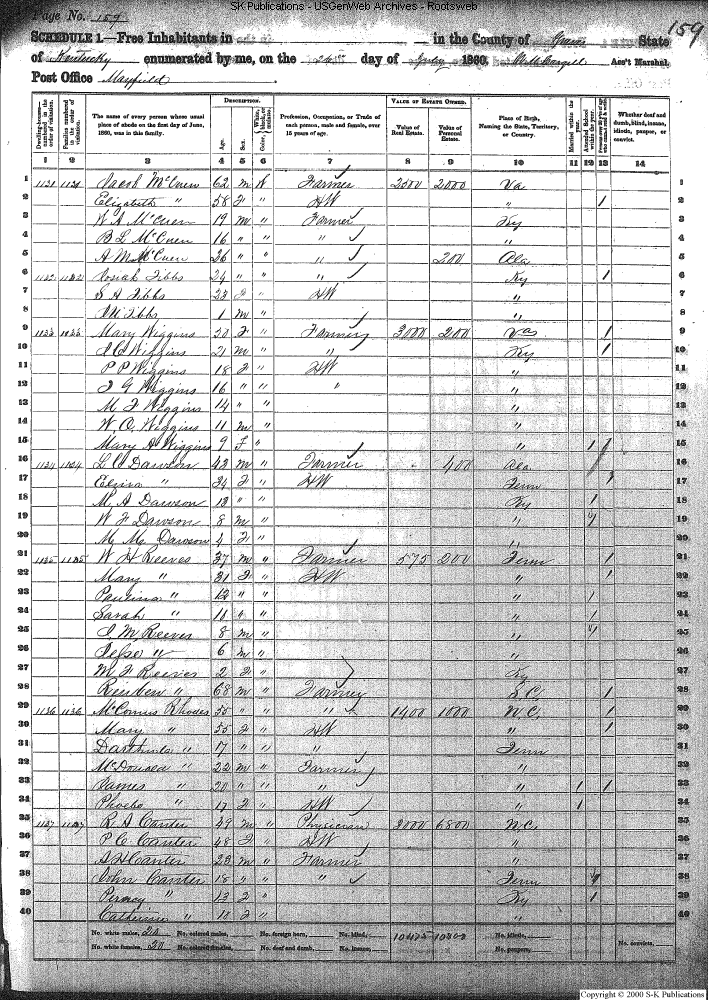 SK Publications - USGenWeb Archives - Rootsweb
Page No. 159
159
SCHEDULE 1.—Free Inhabitants in in the County of Graves State
of Kentucky enumerated by me, on the 24th day of July 1860. Ass't Marshal.
Post Office Mayfield
Dwelling-houses—numbered in the order of visitation.
Families numbered in the order of visitation.
The name of every person whose usual place of abode on the first day of June, 1860, was in this family.
DESCRIPTION.
Age.
Sex.
Profession, Occupation, or Trade of each person, male and female, over 15 years of age.
VALUE OF ESTATE OWNED.
Value of Real Estate.
Value of Personal Estate.
Place of Birth, Naming the State, Territory, or Country.
Married within the year.
Attended School within the year.
Whether deaf and dumb, blind, insane, idiotic, pauper, or convict.
1 2 3 4 5 6 7 8 9 10 11 12 13 14
1 1131 1131 Jacob McCuen 62 m W Farmer 2500 2000 Va 1
2 Elizabeth " 58 F " HW " / 2
3 W A McCuen 19 m " Farmer Ky 3
4 B L McCuen 16 " " " " 4
5 A M McCuen 26 " " " 200 Ala 5
6 1132 1132 Josiah Tibbs 24 " " " Ky / 6
7 S A Tibbs 23 F " HW " 7
8 Tibbs 1 m " " 8
9 1133 1133 Mary Wiggins 50 F " Farmer 3000 200 Va / 9
10 Wiggins 21 m " " Ky / 10
11 P P Wiggins 18 F " HW " 11
12 G Wiggins 16 " " " " 12
13 M F Wiggins 14 " " " 13
14 W C Wiggins 11 m " " 14
15 Mary A Wiggins 9 F " " / 15
16 1134 1134 L C Dawson 43 m " Farmer 400 Ala 16
17 " 34 F " HW Tenn / 17
18 M A Dawson 13 " " Ky / 18
19 W F Dawson 8 m " " / 19
20 M M Dawson 4 F " " 20
21 1135 1135 W H Reeves 37 m " Farmer 575 200 Tenn / 21
22 Mary " 31 F " HW " / 22
23 Paulina " 12 " " " / 23
24 Sarah " 10 " " " / 24
25 J M Reeves 8 m " " / 25
26 " 6 m " " 26
27 M F Reeves 2 F " Ky 27
28 " 68 m " Farmer S.C. / 28
29 1136 1136 Rhodes 55 " " " 1400 1000 N.C. / 29
30 Mary " 55 F " HW " / 30
31 " 17 " " " Tenn 31
32 " 22 m " Farmer " 32
33 James " 20 " " " " / / 33
34 Phoebe " 17 F " HW " / 34
35 1137 1137 R A Canter 49 m " Physician 3000 6800 N.C. 35
36 P C Canter 48 F " HW " 36
37 A H Canter 23 m " Farmer " 37
38 John Canter 18 " " " Tenn / 38
39 " 13 F " Ky / 39
40 Catherine " 10 F " " 40
No. white males, 20 No. colored males, No. foreign born, No. blind, No. idiotic,
No. white females, 20 No. colored females, No. deaf and dumb, No. insane, No. paupers, No. convicts,
Copyright © 2000 S-K Publications